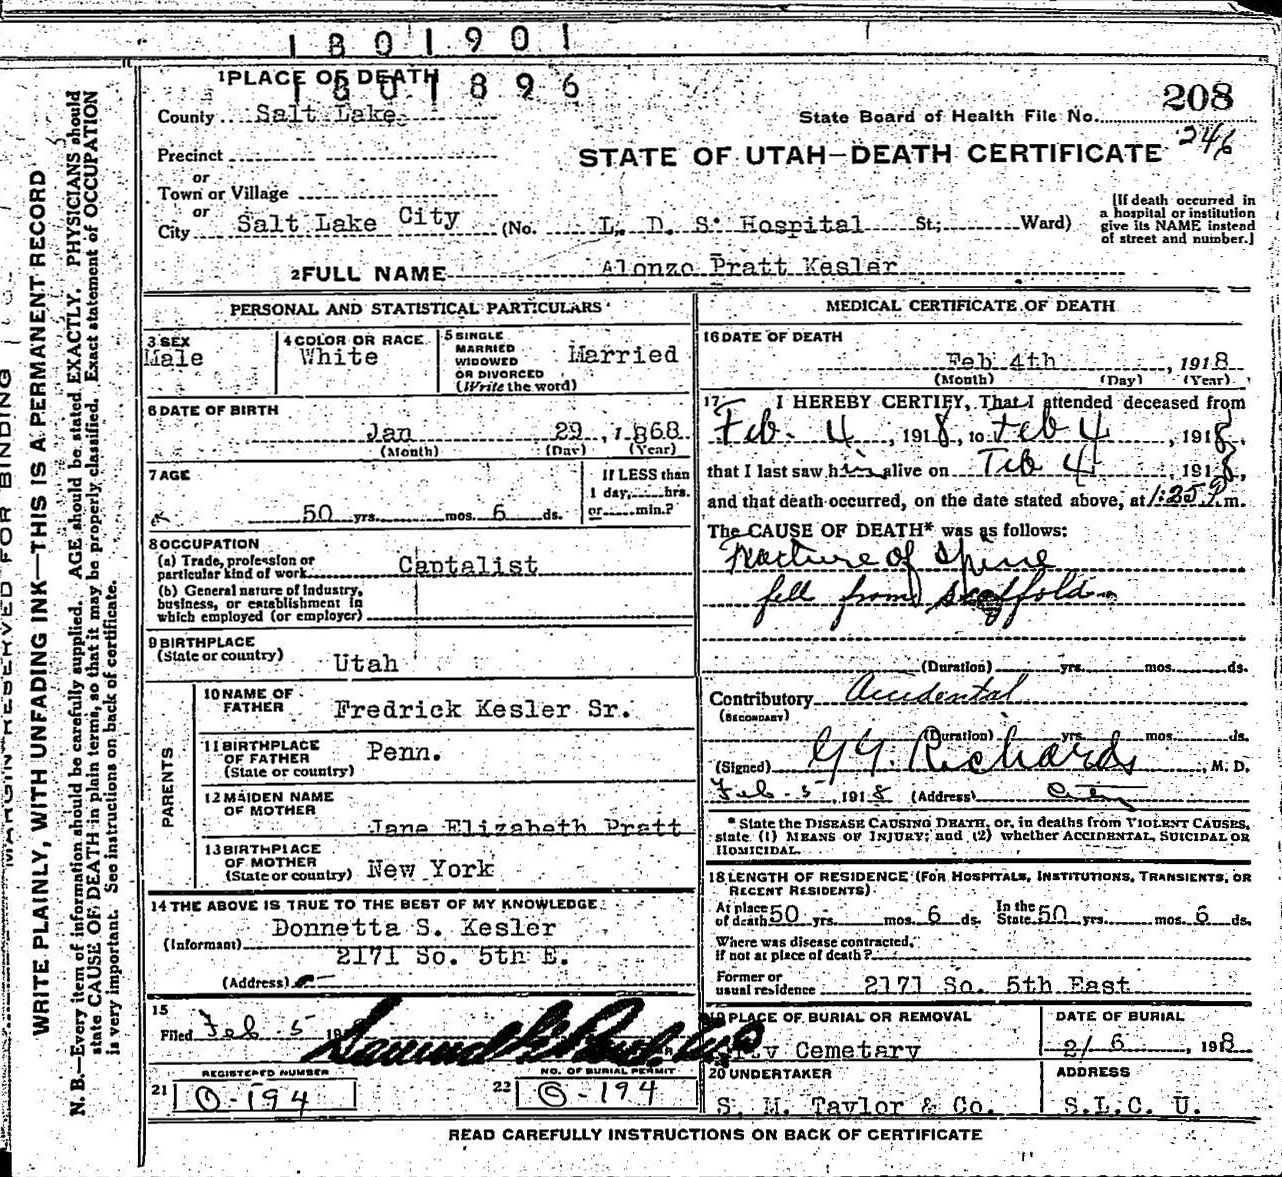 1801901
1801896
1 PLACE OF DEATH
County Salt Lake
208
State Board of Health File No.
246
Precinct
or
Town or Village
or
City Salt Lake City (No. L. D. S. Hospital St; Ward)
STATE OF UTAH—DEATH CERTIFICATE
[If death occurred in
a hospital or institution
give its NAME instead
of street and number.]
2 FULL NAME Alonzo Pratt Kesler
PERSONAL AND STATISTICAL PARTICULARS
3 SEX
Male
4 COLOR OR RACE
White
5 SINGLE
MARRIED
WIDOWED
OR DIVORCED
(Write the word)
Married
6 DATE OF BIRTH
Jan 29, 1868
(Month) (Day) (Year)
7 AGE
50 yrs. mos. 6 ds.
If LESS than
1 day, hrs.
or min.?
8 OCCUPATION
(a) Trade, profession or
particular kind of work Captalist
(b) General nature of industry,
business, or establishment in
which employed (or employer)
9 BIRTHPLACE
(State or country) Utah
PARENTS
10 NAME OF
FATHER Fredrick Kesler Sr.
11 BIRTHPLACE
OF FATHER
(State or country) Penn.
12 MAIDEN NAME
OF MOTHER
Jane Elizabeth Pratt
13 BIRTHPLACE
OF MOTHER
(State or country) New York
14 THE ABOVE IS TRUE TO THE BEST OF MY KNOWLEDGE
(Informant) Donnetta S. Kesler
2171 So. 5th E.
(Address)
15
Filed Feb. 5 191
REGISTERED NUMBER
21 O-194
NO. OF BURIAL PERMIT
22 O-194
MEDICAL CERTIFICATE OF DEATH
16 DATE OF DEATH
Feb 4th, 1918
(Month) (Day) (Year)
17 I HEREBY CERTIFY, That I attended deceased from
Feb. 4, 1918, to Feb 4, 1918,
that I last saw him alive on Feb 4, 1918,
and that death occurred, on the date stated above, at 1:25 P m.
The CAUSE OF DEATH* was as follows:
Fracture of Spine
fell from scaffold
(Duration) yrs. mos. ds.
Contributory Accidental
(SECONDARY)
(Duration) yrs. mos. ds.
(Signed) G. G. Richards, M. D.
Feb. 5, 1918 (Address) City
* State the DISEASE CAUSING DEATH, or, in deaths from VIOLENT CAUSES,
state (1) MEANS OF INJURY; and (2) whether ACCIDENTAL, SUICIDAL OR
HOMICIDAL.
18 LENGTH OF RESIDENCE (FOR HOSPITALS, INSTITUTIONS, TRANSIENTS, OR
RECENT RESIDENTS)
At place
of death 50 yrs. mos. 6 ds.
In the
State 50 yrs. mos. 6 ds.
Where was disease contracted,
if not at place of death?
Former or
usual residence 2171 So. 5th East
19 PLACE OF BURIAL OR REMOVAL
City Cemetary
DATE OF BURIAL
2/6, 1918
20 UNDERTAKER
S. M. Taylor & Co.
ADDRESS
S.L.C. U.
READ CAREFULLY INSTRUCTIONS ON BACK OF CERTIFICATE
MARGIN RESERVED FOR BINDING
WRITE PLAINLY, WITH UNFADING INK—THIS IS A PERMANENT RECORD
N. B.—Every item of information should be carefully supplied. AGE should be stated EXACTLY. PHYSICIANS should
state CAUSE OF DEATH in plain terms, so that it may be properly classified. Exact statement of OCCUPATION
is very important. See instructions on back of certificate.